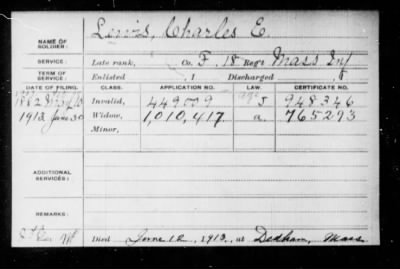 NAME OF SOLDIER: Lewis, Charles E.
SERVICE: Late rank, Co. F, 18 Reg't Mass Inf
TERM OF SERVICE: Enlisted , 1 Discharged , 1
DATE OF FILING. CLASS. APPLICATION NO. LAW. CERTIFICATE NO.
1882 Invalid, J 948346
1913 June 30 Widow, 1,010,417 a. 765293
Minor,
ADDITIONAL SERVICES:
REMARKS:
Died June 12, 1913, at Dedham, Mass.